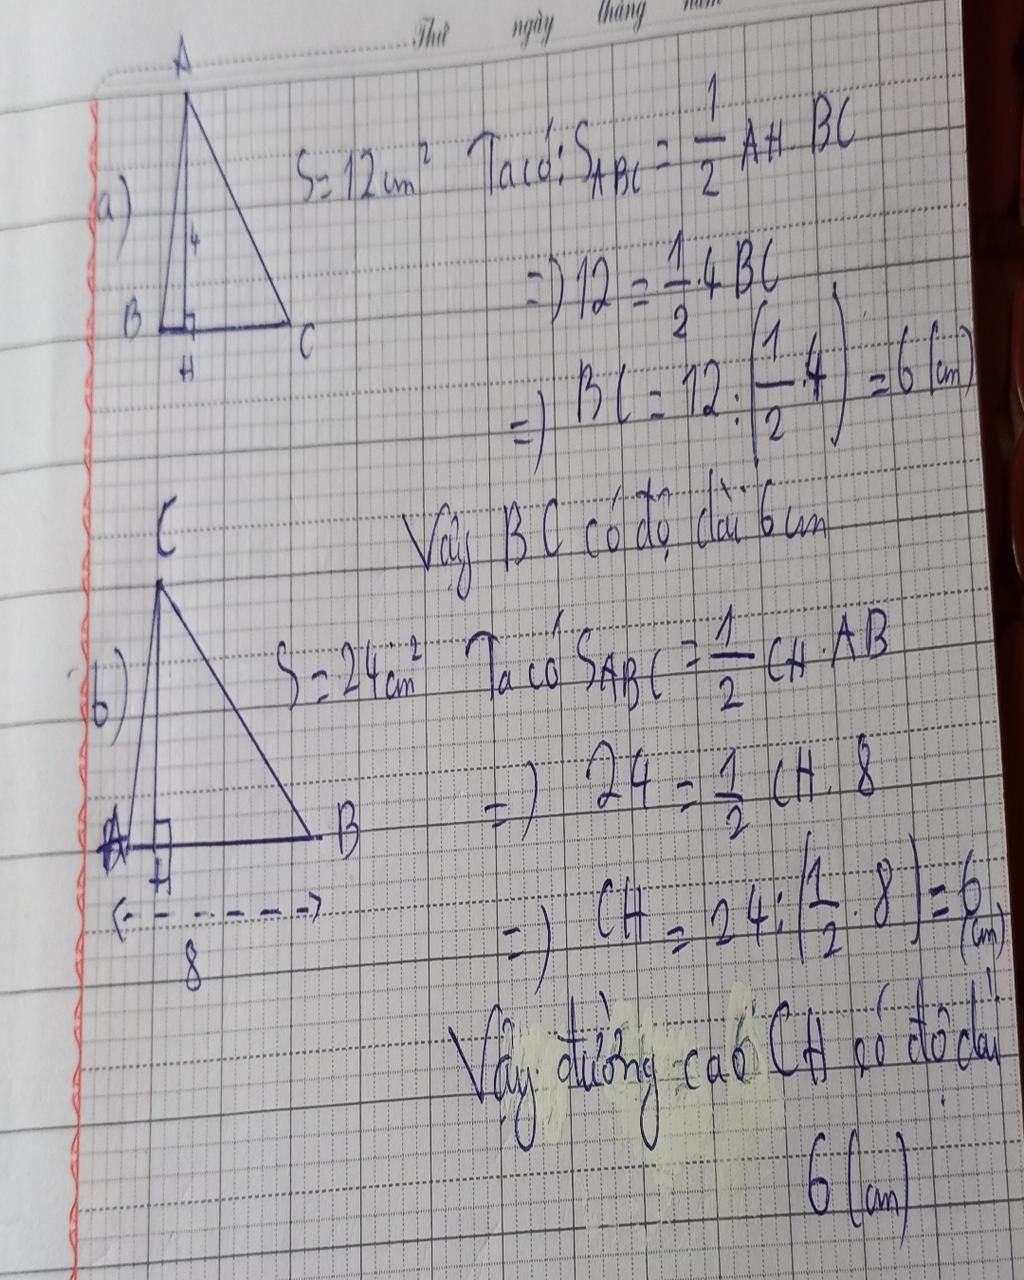 Thứ ngày tháng năm
A
a) S = 12cm² Ta có: S_ABC = 1/2 AH BC
4
B H C
=) 12 = 1/2 . 4 BC
=) BC = 12 : (1/2 . 4) = 6 (cm)
Vậy BC có độ dài 6 cm
C
b) S = 24cm² Ta có S_ABC = 1/2 CH . AB
A H B
=) 24 = 1/2 CH . 8
8
=) CH = 24 : (1/2 . 8) = 6 (cm)
Vậy đường cao CH có độ dài
6 (cm)